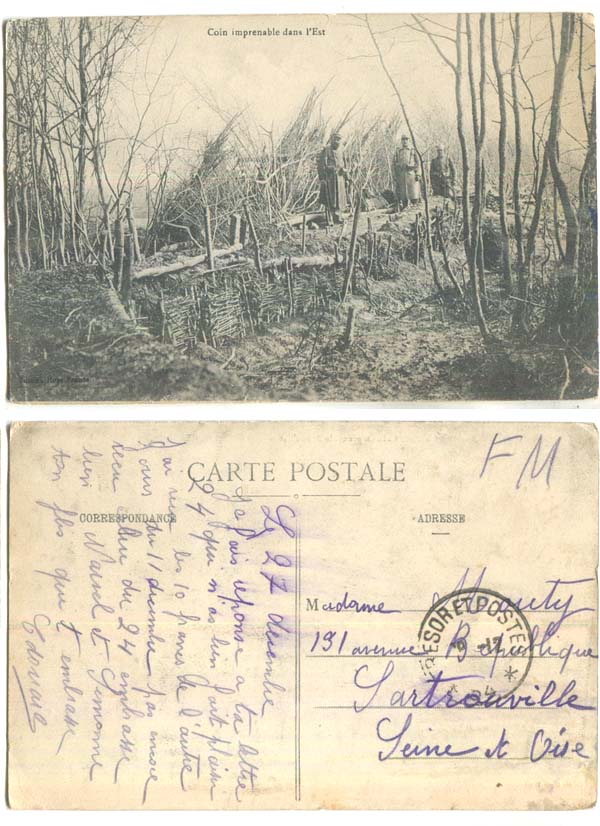 Coin imprenable dans l'Est
CARTE POSTALE
CORRESPONDANCE
ADRESSE
FM
Le 27 décembre
je fais réponse a ta lettre
24 qui m'as bien fait plaisir
j'ai reçu les 10 francs de l'autre
du 11 décembre pas encore
reçu celui du 24 embrasse
bien Marcel et Simonne
ton fils qui t'embrasse
Edouard
Madame
191 avenue République
Sartrouville
Seine et Oise
TRESOR ET POSTES